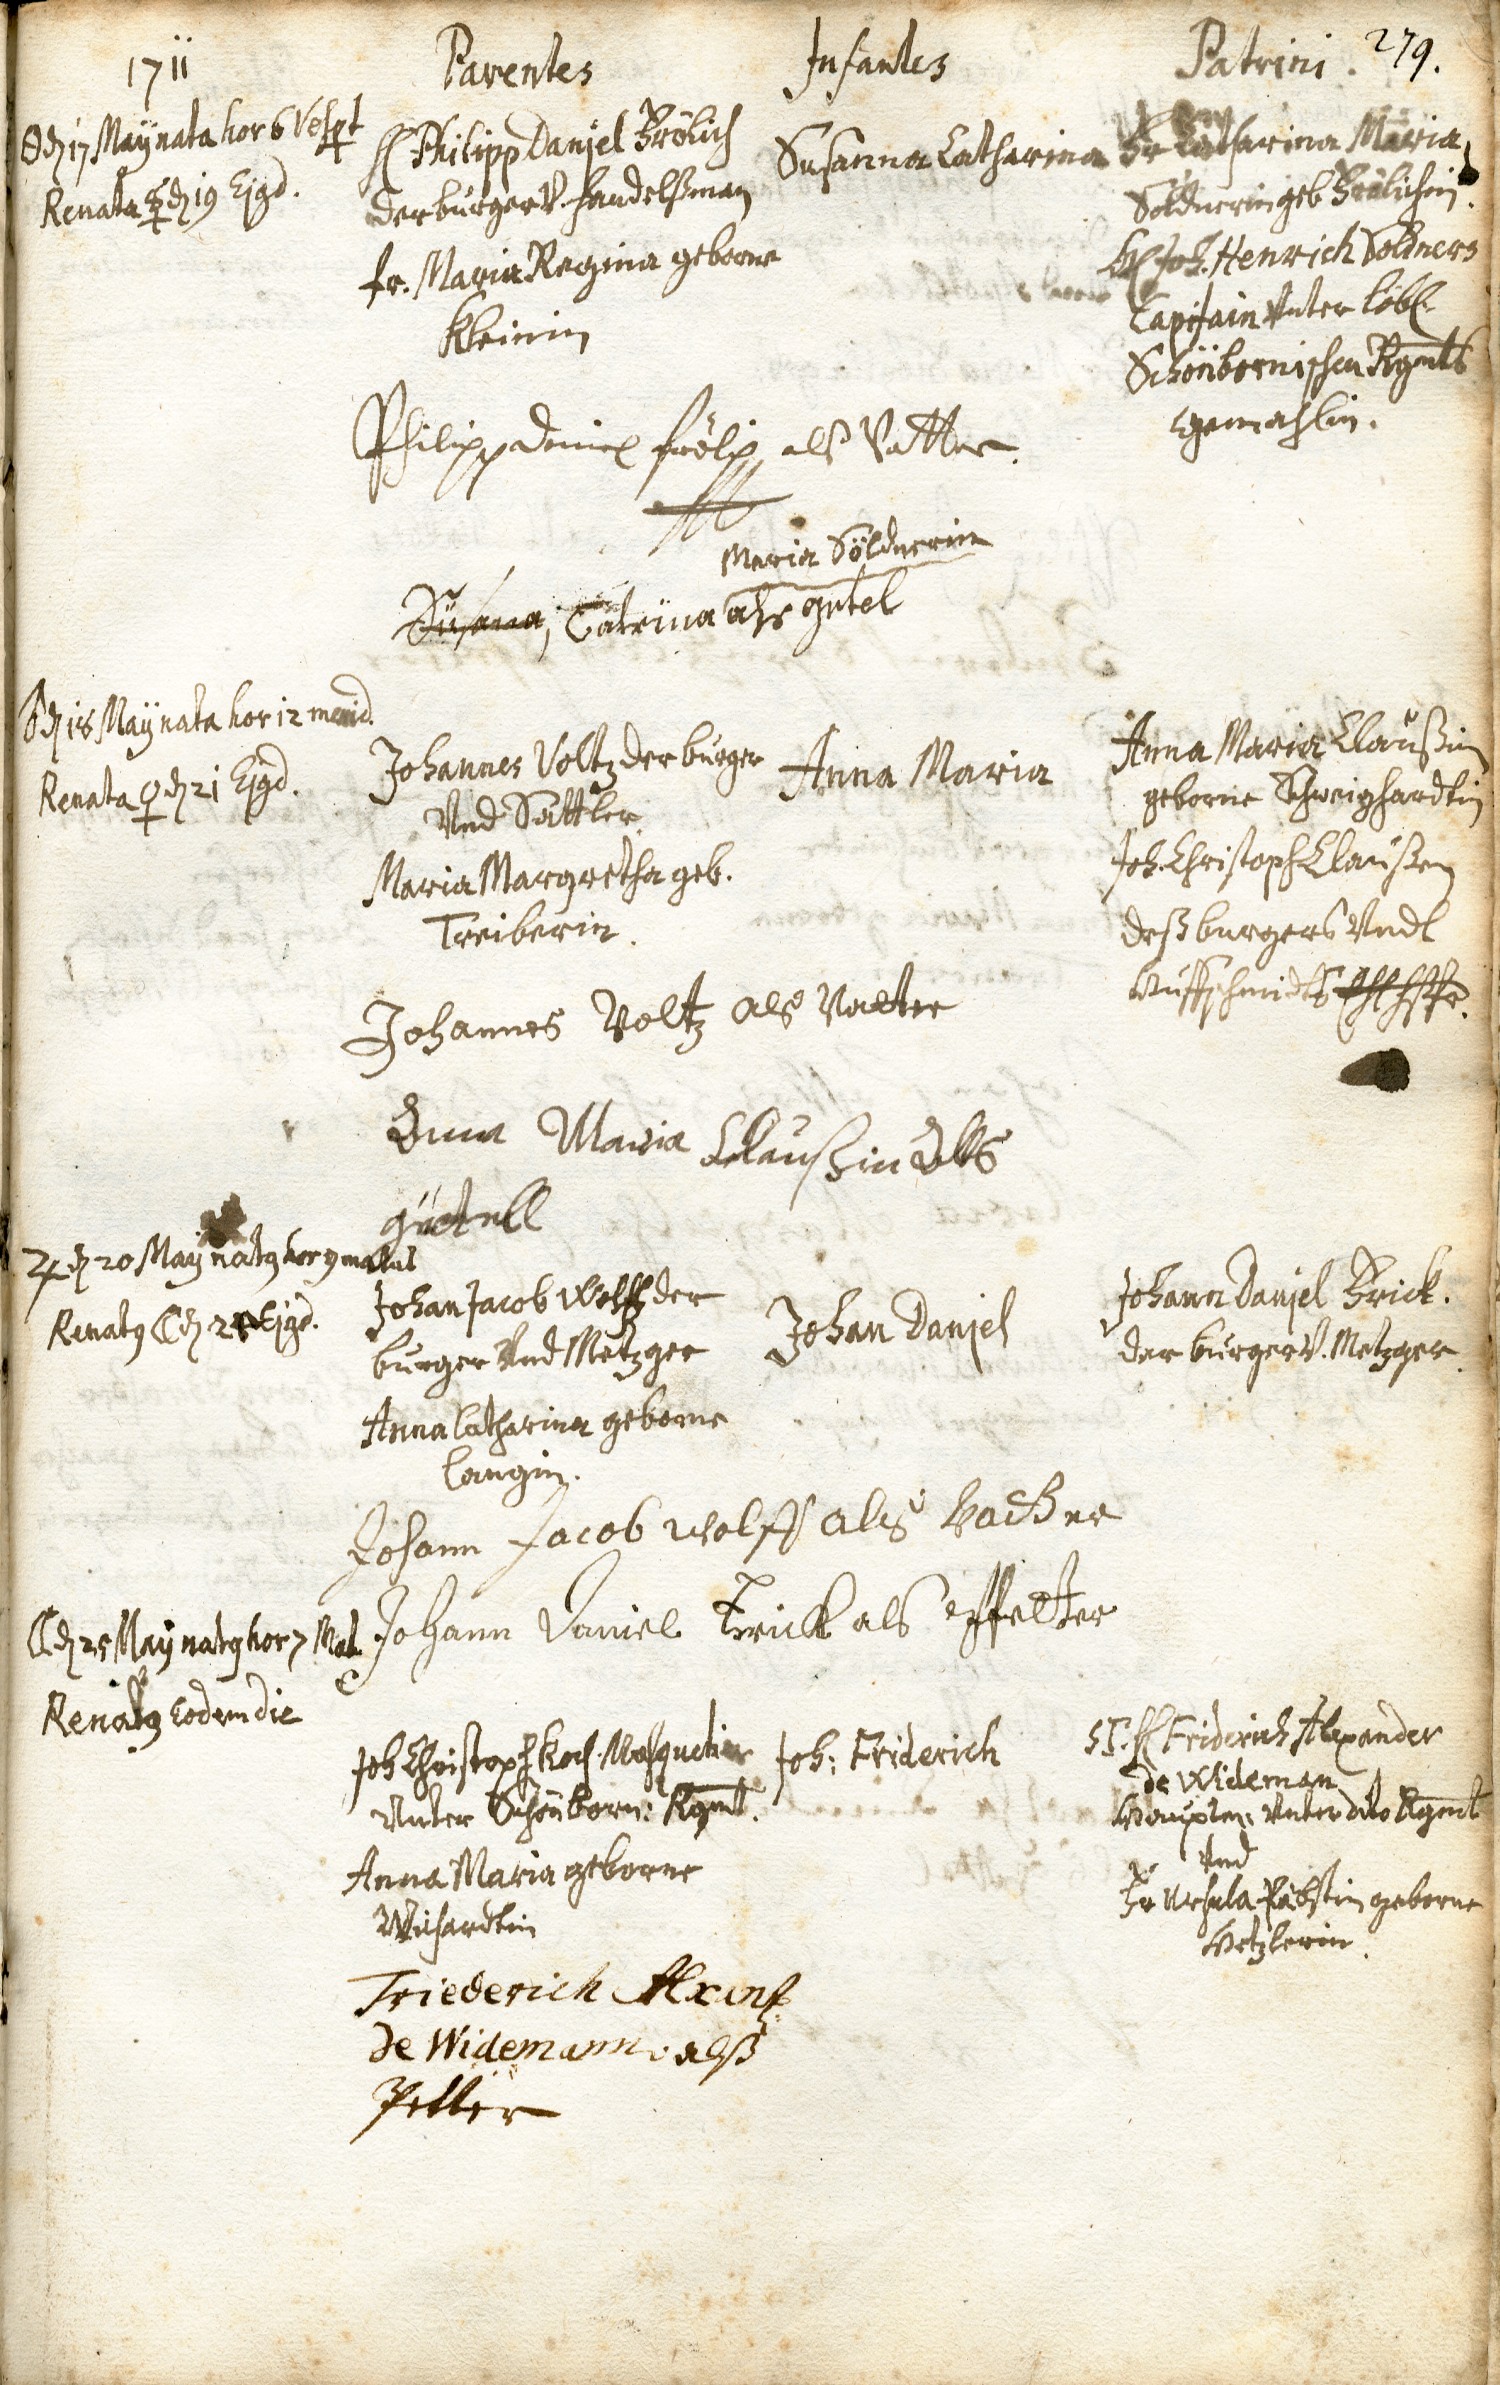 1711 Parentes Infantes Patrini. 279.
☉ d 17 Maij nata hor 6 Vesp.t
Renata ☿ d 19 Ejgd.
H Philipp Danjel Frölich
der burger V. handelßman
fr. Maria Regina geborne
Kleinin
Susanna Catharina
Fr Catharina Maria
Söldnerin geb Frölichin.
H Joh. Henrich Söldners
Capitain Unter löbl.
Schönbornischen Rgmts
Egemahlin.
Philipp Daniel frölich als Vatter.
Maria Söldnerin
Susana, Catrina als götel
d 18 Maij nata hor 12 merid.
Renata ♀ d 21 Ejgd.
Johannes Voltz der burger
Und Sattler
Maria Margretha geb.
Treiberin.
Anna Maria
Anna Maria Claußin
geborne Schweighardtin
Joh. Christoph Claußen
deß burgers Undt
Huffschmidts
Johannes Voltz als Vatter
Anna Maria Claußin Als
göttell
♃ d 20 Maij natg hor 9 matut
Renatg ☾ d Ejgd.
Johan Jacob Wolff der
burger Und Metzger
Anna Catharina geborne
Langin.
Johan Danjel
Johann Danjel Frick.
der burger V. Metzger
Johann Jacob wolff als Vatter
Johann Daniel Frick als pfetter
☾ d 25 Maij natg hor 7 Mat.
Renatg eodem die
Joh Christoph Koch. Mosquetier
Unter Schönborn: Rgmt.
Anna Maria geborne
Joh: Friderich
S.T. H Friderich Alexander
de Wideman
Hauptm: Unter dito Rgmt
Und
Fr Ursula Pabstin geborne
Wetzlerin.
Friederich Alxand
de Widemann. alß
Petter